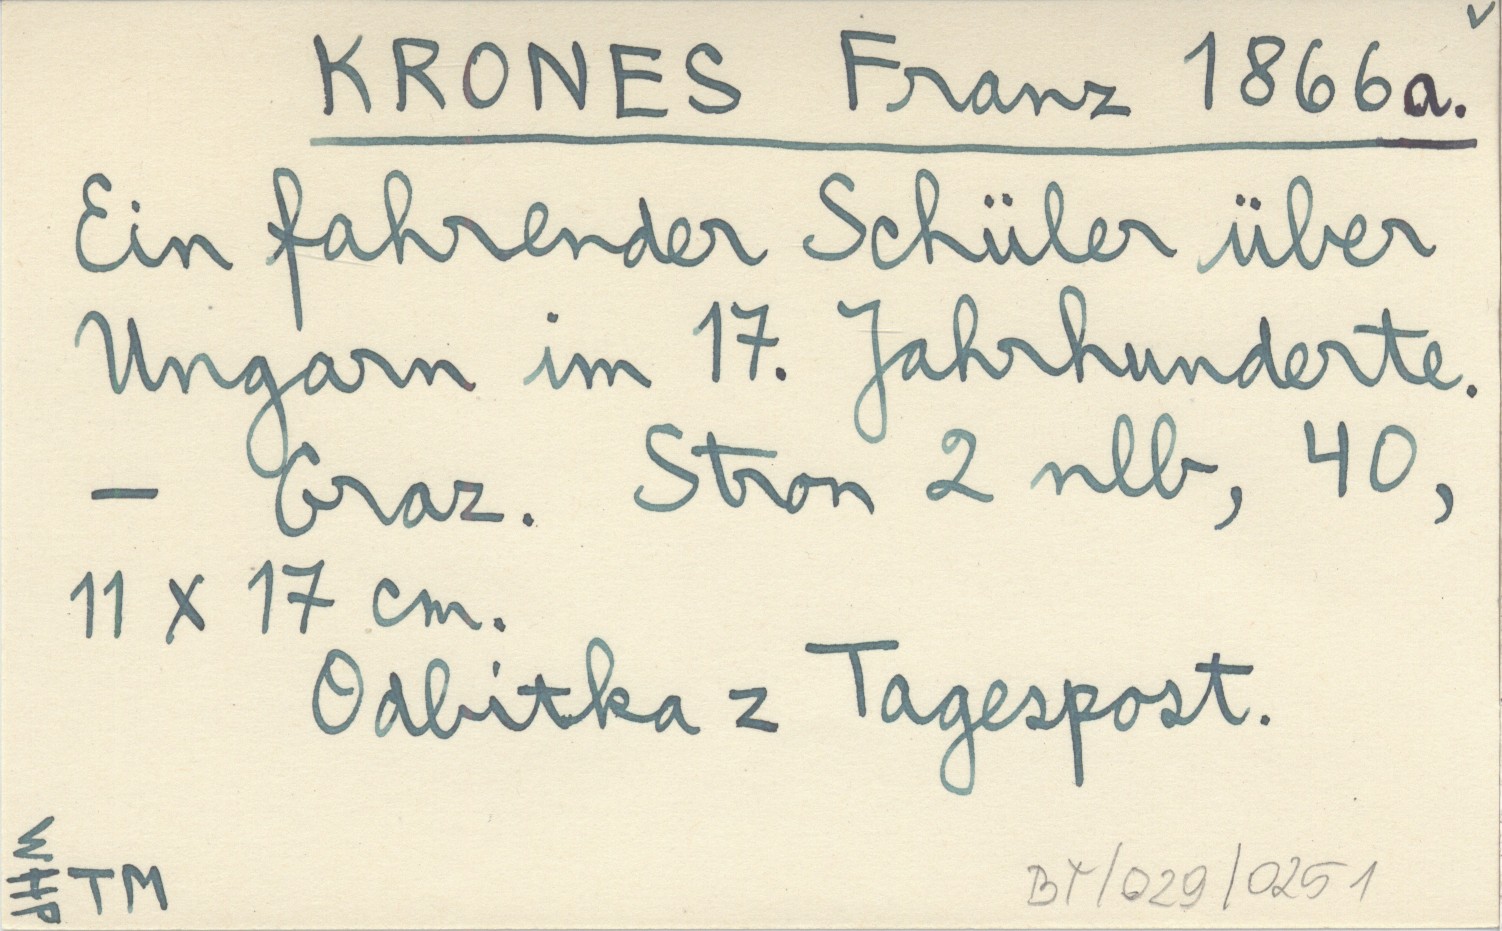 KRONES Franz 1866a.
Ein fahrender Schüler über
Ungarn im 17. Jahrhunderte.
– Graz. Stron 2 nlb, 40,
11 x 17 cm.
Odbitka z Tagespost.
WHP
TM
BT/029/0251